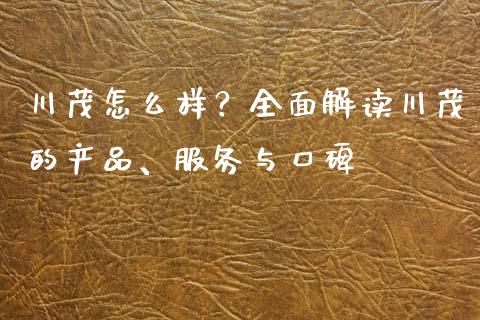 川茂怎么样？全面解读川茂
的产品、服务与口碑